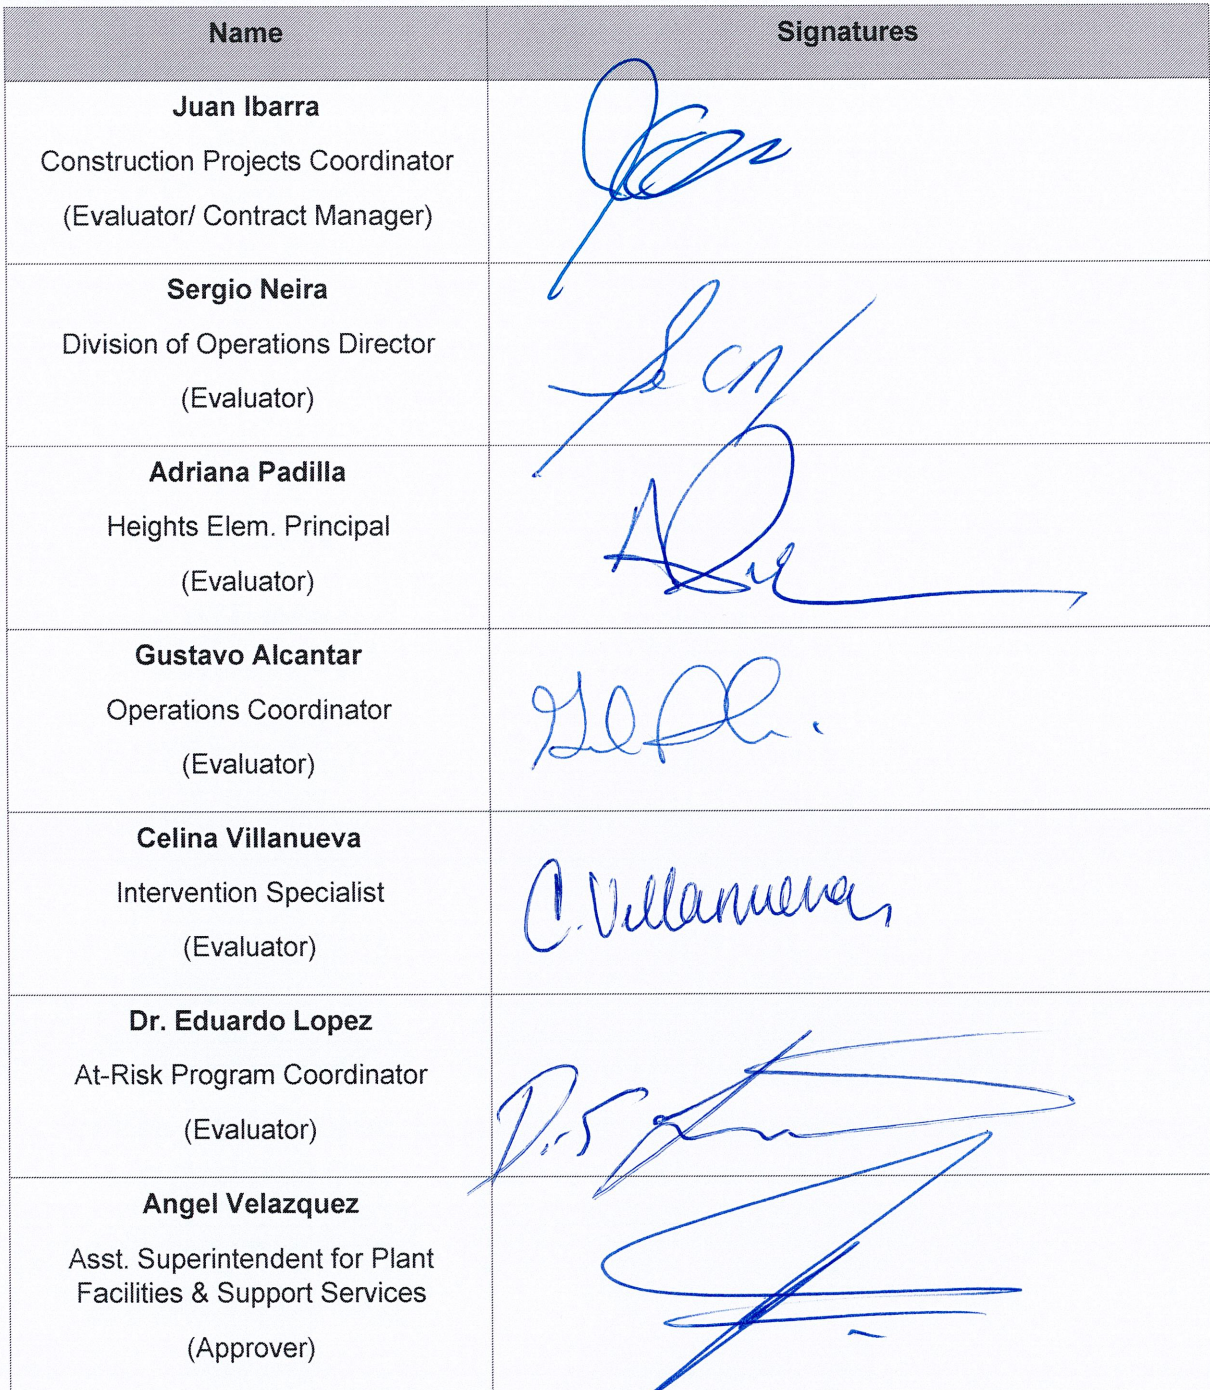 Name Signatures
Juan Ibarra
Construction Projects Coordinator
(Evaluator/ Contract Manager)
Sergio Neira
Division of Operations Director
(Evaluator)
Adriana Padilla
Heights Elem. Principal
(Evaluator)
Gustavo Alcantar
Operations Coordinator
(Evaluator)
Celina Villanueva
Intervention Specialist
(Evaluator)
C. Villanueva
Dr. Eduardo Lopez
At-Risk Program Coordinator
(Evaluator)
Angel Velazquez
Asst. Superintendent for Plant
Facilities & Support Services
(Approver)